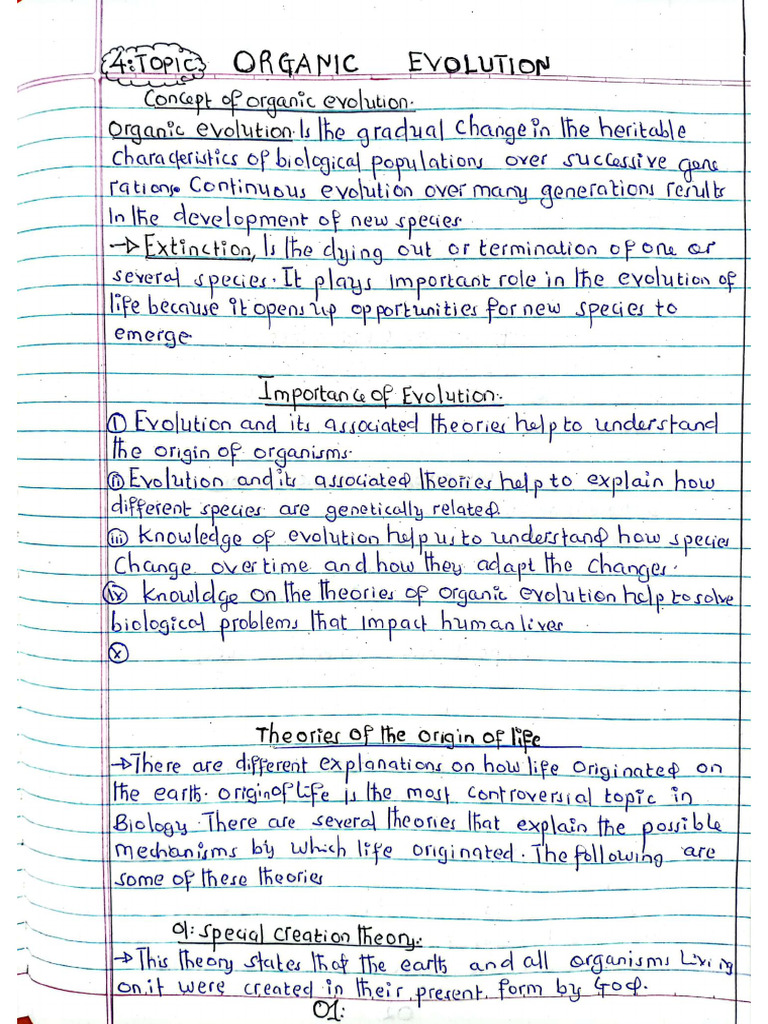 4: TOPIC ORGANIC EVOLUTION
Concept of organic evolution.
Organic evolution. Is the gradual change in the heritable
characteristics of biological populations over successive gene
rations. Continuous evolution over many generations results
In the development of new species.
→ Extinction, Is the dying out or termination of one or
several species. It plays important role in the evolution of
life because it opens up opportunities for new species to
emerge.
Importance of Evolution.
(i) Evolution and its associated theories help to understand
the origin of organisms.
(ii) Evolution and its associated theories help to explain how
different species are genetically related.
(iii) Knowledge of evolution help us to understand how species
Change overtime and how they adapt the changes.
(iv) Knowldge on the theories of organic evolution help to solve
biological problems that impact human lives
(x)
Theories of the origin of life
→ There are different explanations on how life originated on
the earth. origin of life is the most controversial topic in
Biology. There are several theories that explain the possible
mechanisms by which life originated. The following are
some of these theories
01: Special Creation theory:
→ This theory states that the earth and all organisms Living
on it were created in their present form by God.
01: